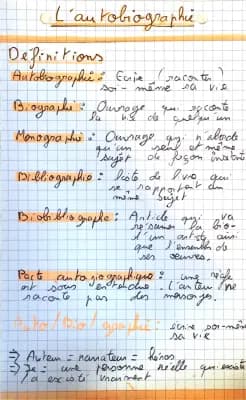 L'autobiographie
Définitions
Autobiographie : Ecrire (raconter)
soi-même sa vie
Biographie : Ouvrage qui raconte
la vie de quelqu'un
Monographie : Ouvrage qui n'aborde
qu'un seul et même
sujet de façon
Bibliographie : liste de livre qui
se rapportent au
même sujet
Biobibliographie : Article qui va
résumer la bio-
d'un artiste ainsi
que l'ensemble de
ses œuvres.
Pacte autobiographique : une règle
est sous entendue. L'auteur ne
raconte pas des mensonges.
Auto/Bio/graphie : écrire soi-même
sa vie
=> Auteur = narrateur = héros
=> Je = une personne réelle, qui existe
a existé vraiment